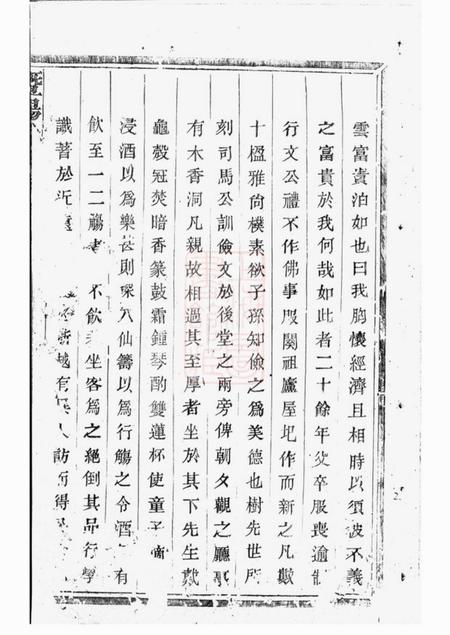 雲富貴泊如也曰我胸懷經濟且相時以須彼不義
之富貴於我何哉如此者二十餘年父卒服喪逾制
行文公禮不作佛事服闋祖廬屋圮作而新之凡數
十楹雅尙樸素欲子孫知儉之爲美德也樹先世所
刻司馬公訓儉文於後堂之兩旁俾朝夕觀之廳事
有木香洞凡親故相過其至厚者坐於其下先生戴
龜殼冠焚暗香篆鼓霜鍾琴酌雙蓮杯使童子
浸酒以爲樂甚則探八仙籌以爲行觴之令酒 有
飮至一二觴 不飮 坐客爲之絕倒其品行學
識著於近 越有 人訪而得